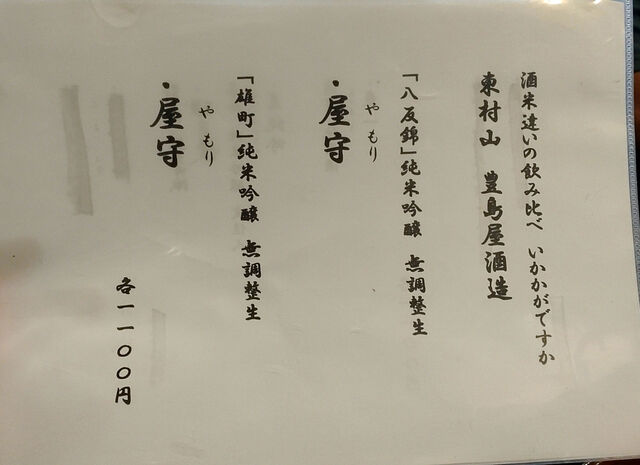 酒米違いの飲み比べ いかかがですか
東村山 豊島屋酒造
「八反錦」純米吟醸 無調整生
やもり
・屋守
「雄町」純米吟醸 無調整生
やもり
・屋守
各一一〇〇円